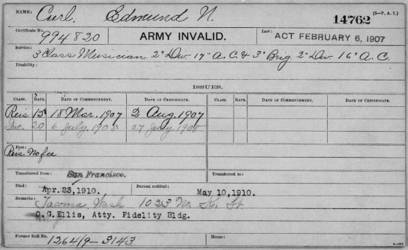 NAME: Curl, Edmund N. 14762 (S-P.A.I.)
Certificate No. 994820 ARMY INVALID. Law: ACT FEBRUARY 6, 1907
Service: 3 Class Musician 2" Div 17" A.C. & 3" Brig 2" Div 16" A.C.
Disability:
ISSUES.
CLASS. RATE. DATE OF COMMENCEMENT. DATE OF CERTIFICATE. CLASS. RATE. DATE OF COMMENCEMENT. DATE OF CERTIFICATE.
Reis 12 18 Mar. 1907 2 Aug. 1907
20 6 July
Reis No fee
Transferred from San Francisco.
Died: Apr. 23, 1910. May 10, 1910.
Remarks: Tacoma, Wash 1023 St
O. G. Ellis, Atty. Fidelity Bldg.
Former Roll No.